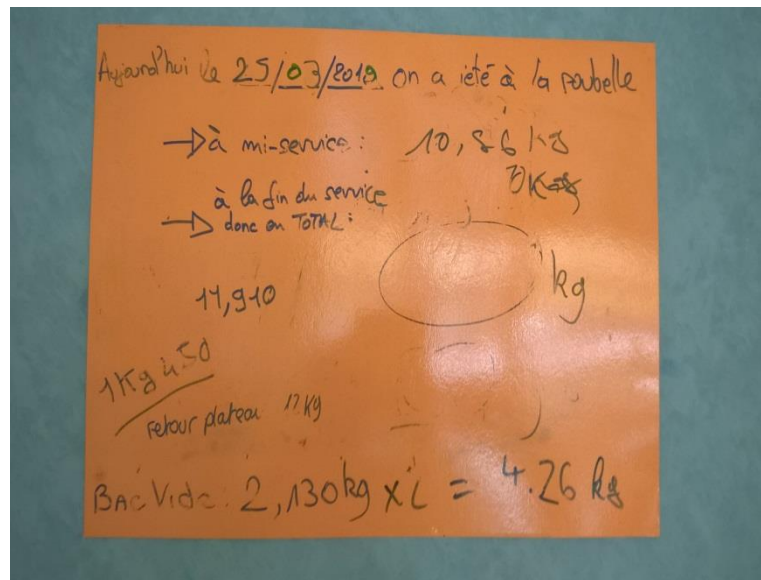 Aujourd'hui le 25/03/2019 on a jeté à la poubelle
à mi-service : 10,86 kg
à la fin du service
donc au TOTAL : kg
11,910
1Kg 450
retour plateau 12 Kg
BAC Vide : 2,130 kg x 2 = 4.26 kg